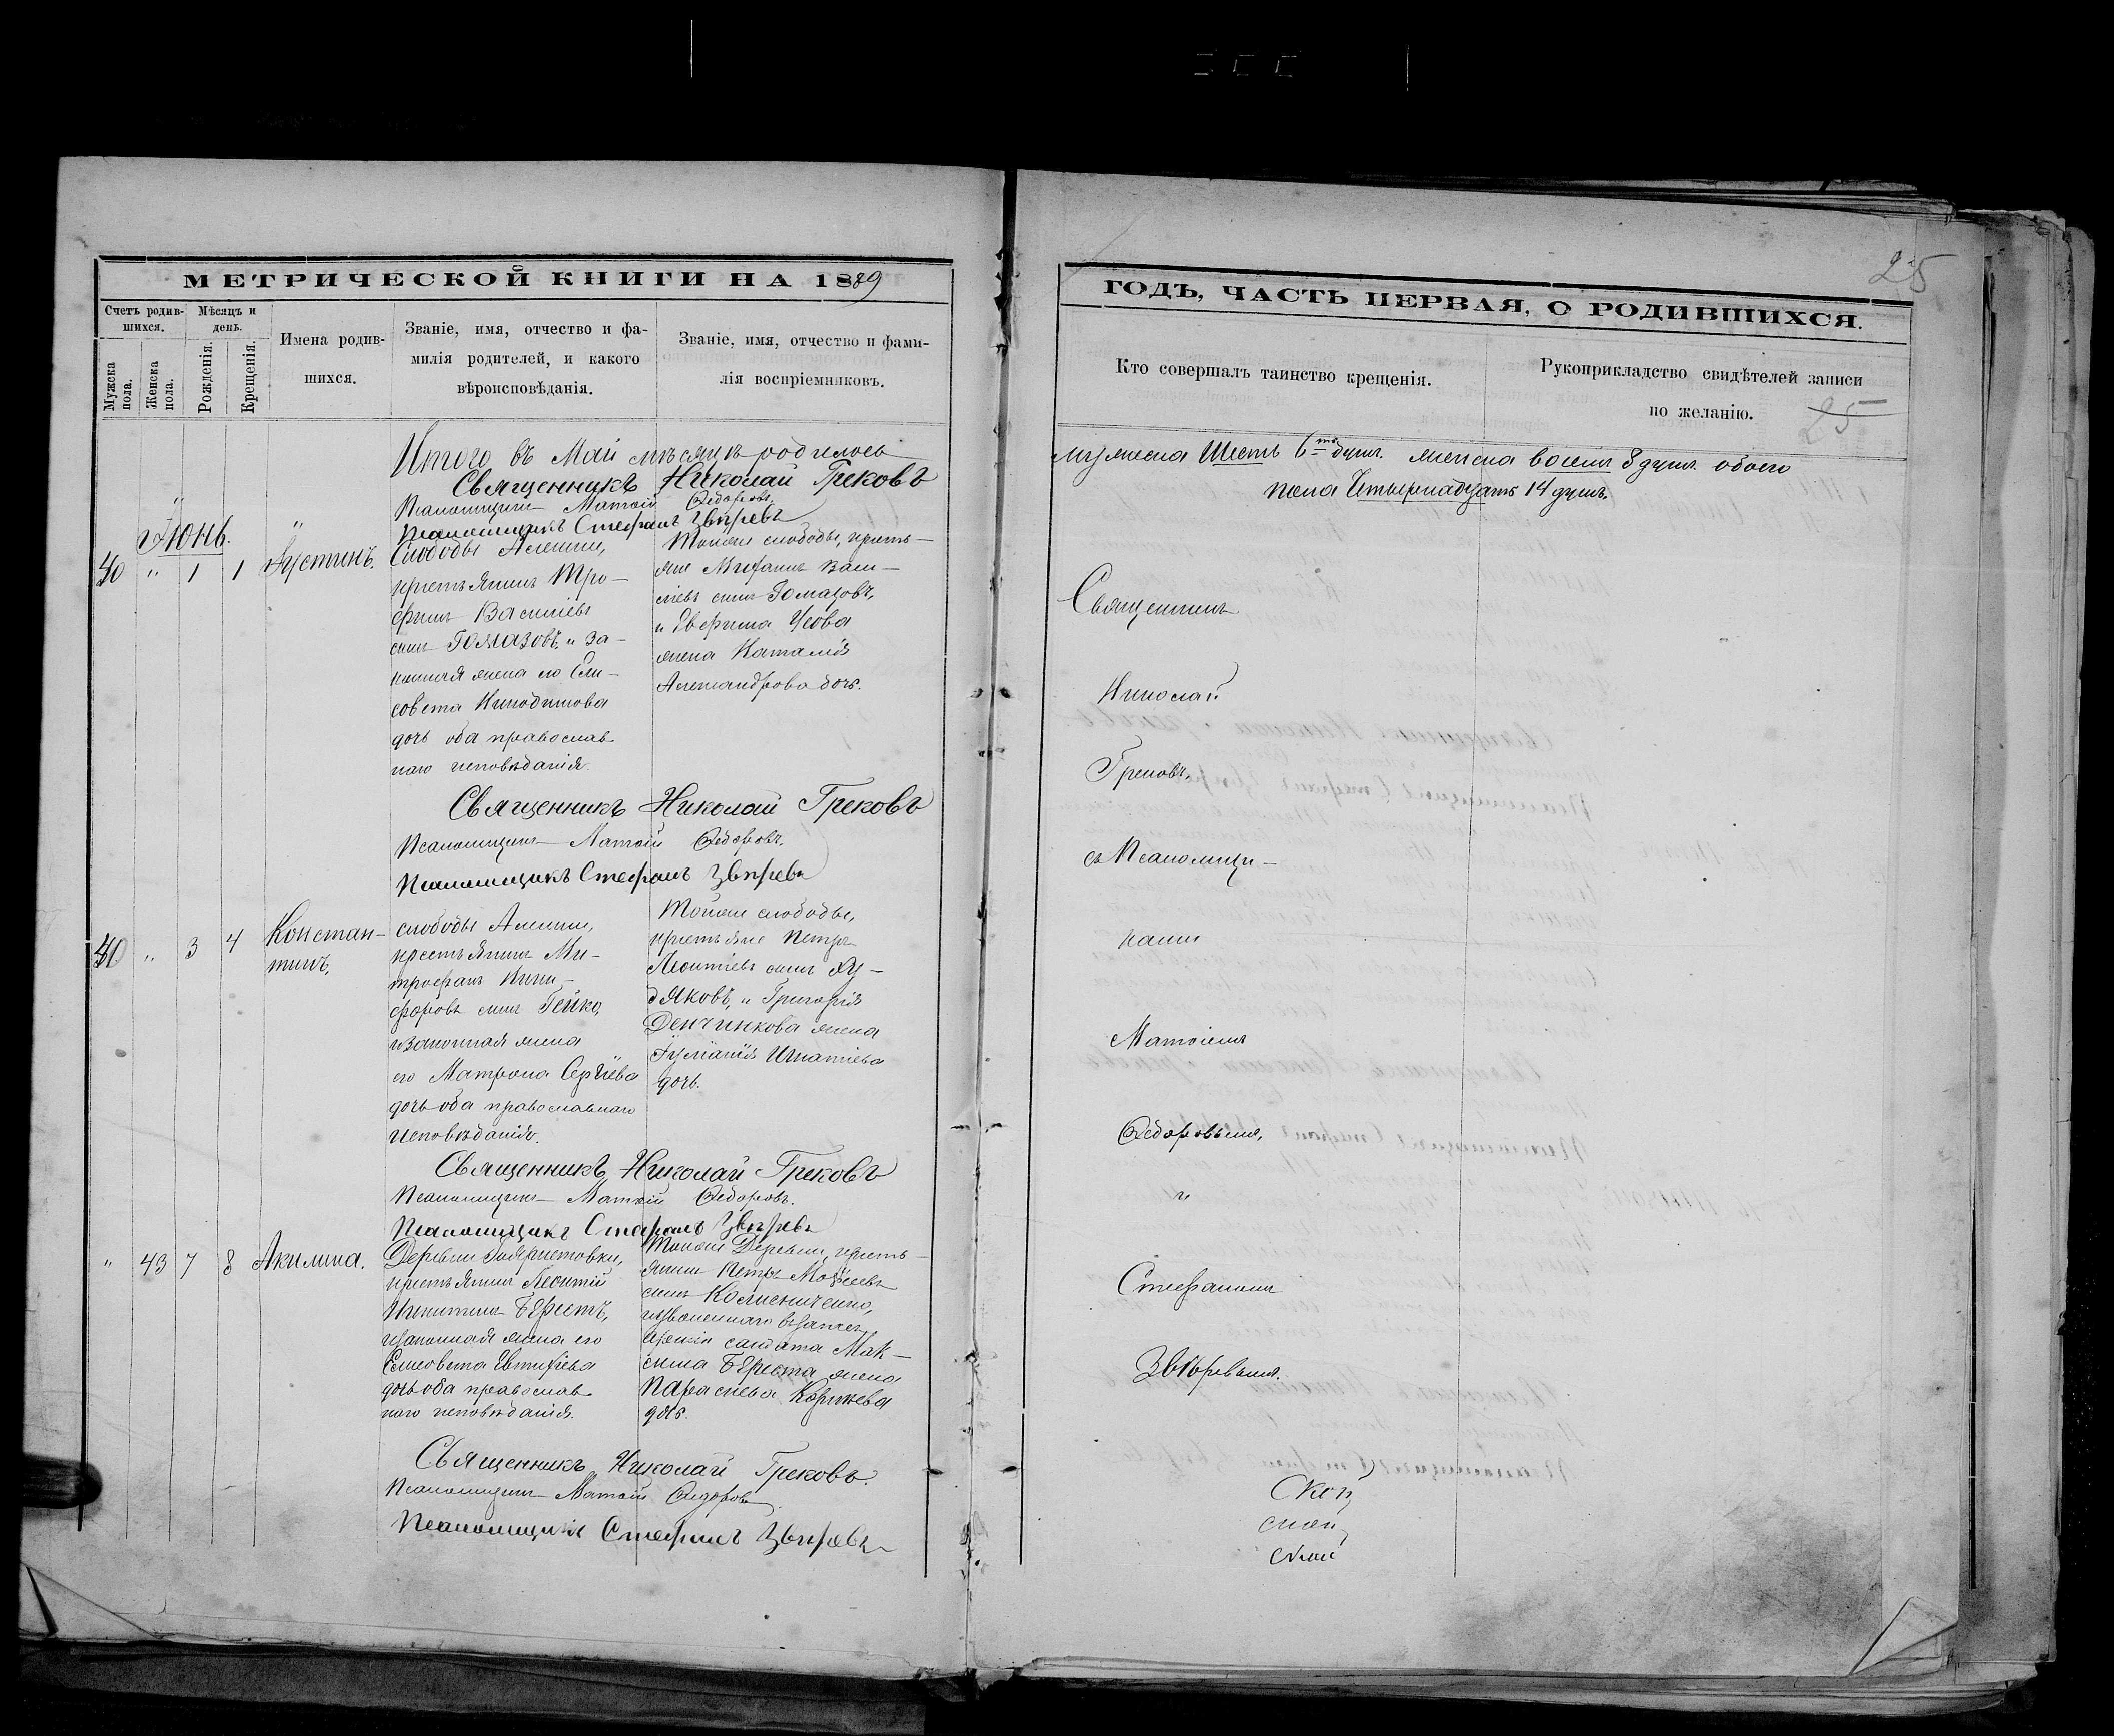 МЕТРИЧЕСКОЙ КНИГИ НА 1889
ГОДЪ, ЧАСТЬ ПЕРВАЯ, О РОДИВШИХСЯ.
25
Счетъ родив-
шихся.
Мужска
пола.
Женска
пола.
Мѣсяцъ и
день.
Рожденія.
Крещенія.
Имена родив-
шихся.
Званіе, имя, отчество и фа-
милія родителей, и какого
вѣроисповѣданія.
Званіе, имя, отчество и фами-
лія воспріемниковъ.
Кто совершалъ таинство крещенія.
Рукоприкладство свидѣтелей записи
по желанію.
25
Итого въ Май мѣсяцѣ родилось
мужеска Шесть 6 душъ. женска восемь 8 душъ. обоего
пола Четырнадцать 14 душъ.
Священникъ Николай Грековъ
Псаломщикъ Матѳій Ѳедоровъ.
Псаломщикъ Стефанъ Звѣревъ
Іюнь.
40 " 1 1 Іустинъ.
Слободы
крестьянинъ Тро-
фимъ Василіевъ
сынъ Гомазовъ, и за-
конная жена его Ели-
совета Никодимова
дочь оба православ-
наго исповѣданія.
Тойже слободы, кресть-
яне Митрофанъ Васи-
ліевъ сынъ Гомазовъ,
и Евфима Усова
жена Наталія
Александрова дочь.
Священникъ Николай Грековъ
Псаломщикъ Матѳій Ѳедоровъ.
Псаломщикъ Стефанъ Звѣревъ
40 " 3 4 Констан-
тинъ.
слободы
крестьянинъ Ми-
трофанъ Ники-
форовъ сынъ Гейко,
и законная жена
его Матрона Сергіева
дочь оба православнаго
исповѣданія.
Тойже слободы,
крестьяне Петръ
Леонтіевъ сынъ Ху-
дяковъ, и Григорія
Денчикова жена
Іуліанія Игнатіева
дочь.
Священникъ Николай Грековъ
Псаломщикъ Матѳій Ѳедоровъ.
Псаломщикъ Стефанъ Звѣревъ
" 43 7 8 Акилина.
Деревни
крестьянинъ Леонтій
Никитинъ Берестъ,
и законная жена его
Елисовета Евтихіева
дочь оба православ-
наго исповѣданія.
Тойже Деревни, кресть-
янинъ Петръ Моѵсеевъ
сынъ Колисниченко,
и уволеннаго въ запасъ
арміи солдата Мак-
сима Береста жена
Параскева
дочь.
Священникъ Николай Грековъ.
Псаломщикъ Матѳій Ѳедоровъ
Псаломщикъ Стефанъ Звѣревъ
Священникъ
Николай
Грековъ,
съ Псаломщи-
ками
Матѳіемъ
Ѳедоровымъ,
и
Стефаномъ
Звѣревымъ.